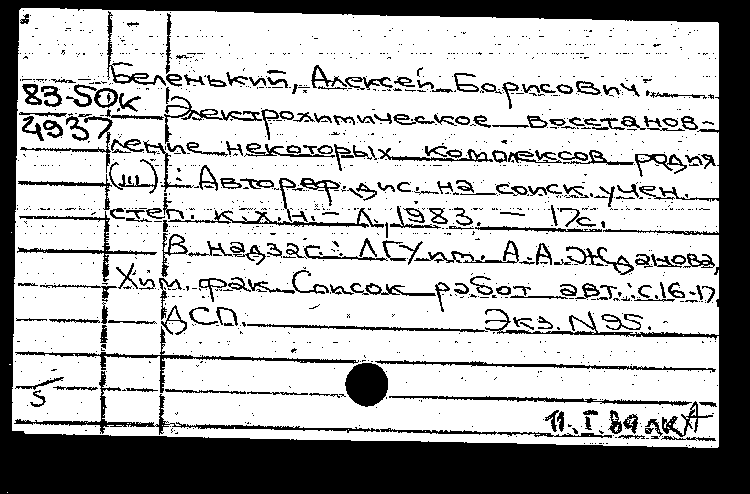 Беленький, Алексей Борисович.
83-50к Электрохимическое восстанов-
4937 ление некоторых комплексов родия
(III) : Автореф. дис. на соиск. учен.
степ. к.х.н. – Л., 1983. – 17с.
В надзаг.: ЛГУ им. А.А. Жданова,
Хим. фак. Список работ авт.: с.16-17.
ДСП. Экз. N 95.
5
11.I.84